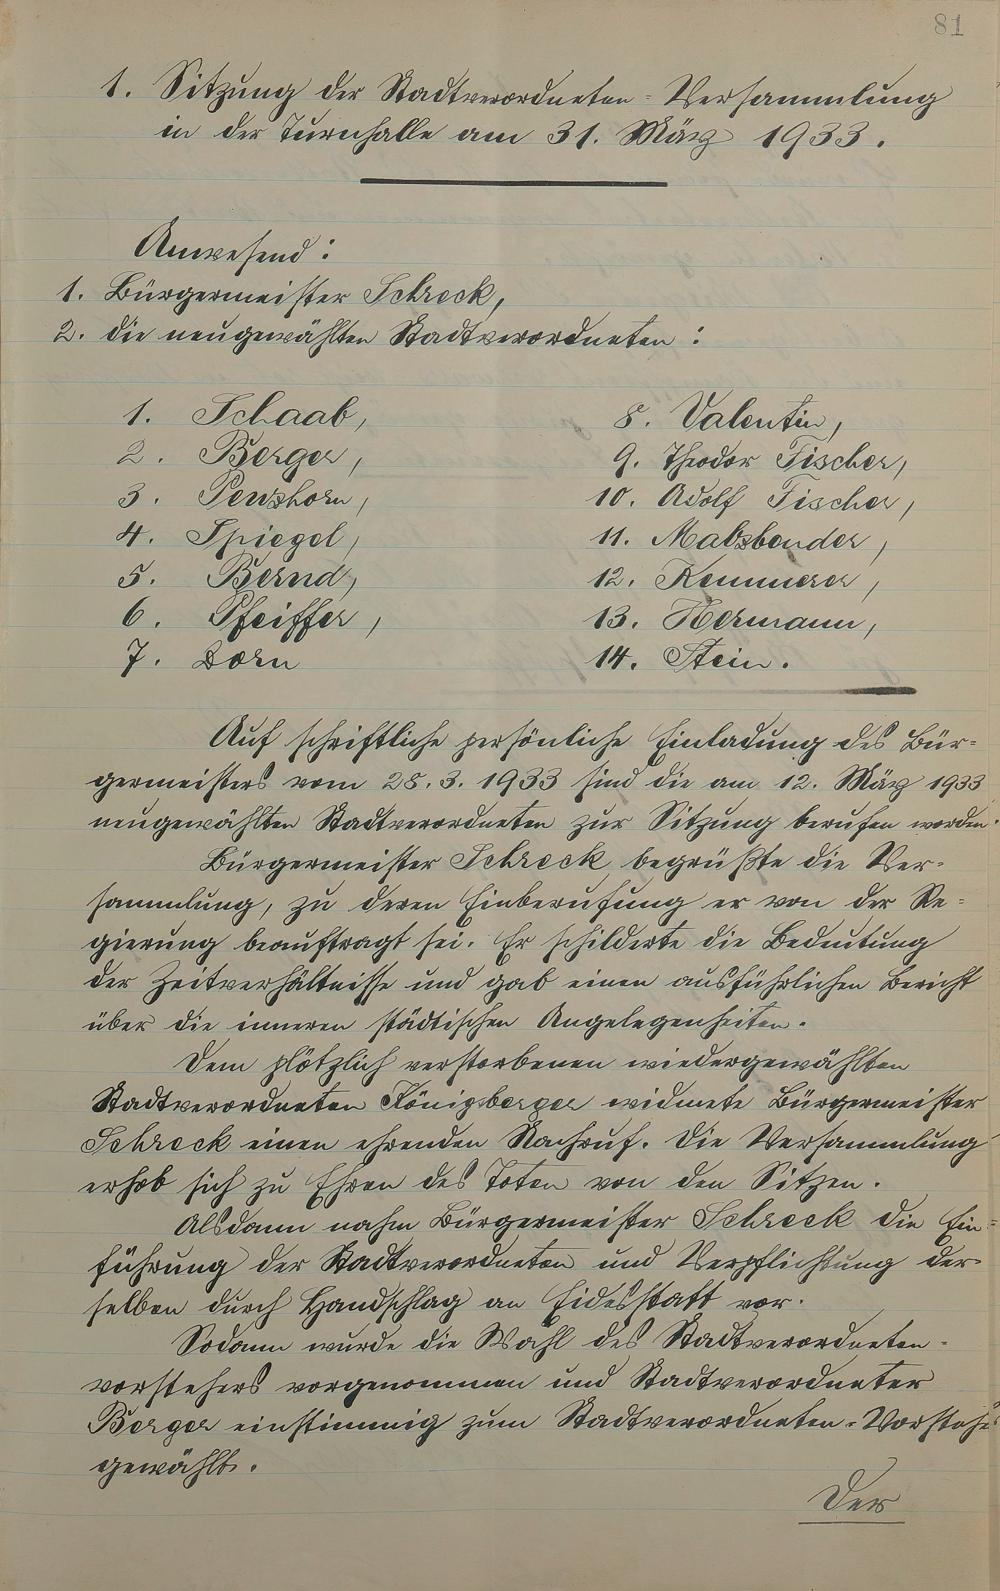 81
1. Sitzung der Stadtverordneten-Versammlung
in der Turnhalle am 31. März 1933.
Anwesend:
1. Bürgermeister Schreck,
2. die neugewählten Stadtverordneten:
1. Schaab,
2. Berger,
3. Penshorn,
4. Spiegel,
5. Bernd,
6. Pfeiffer,
7. Dorn
8. Valentin,
9. Theodor Fischer,
10. Adolf Fischer,
11. Malsbender,
12. Kemmerer,
13. Hermann,
14. Stein.
Auf schriftliche persönliche Einladung des Bür-
germeisters vom 28.3.1933 sind die am 12. März 1933
neugewählten Stadtverordneten zur Sitzung berufen worden.
Bürgermeister Schreck begrüßte die Ver-
sammlung, zu deren Einberufung er von der Re-
gierung beauftragt sei. Er schilderte die Bedeutung
der Zeitverhältnisse und gab einen ausführlichen Bericht
über die inneren städtischen Angelegenheiten.
Dem plötzlich verstorbenen wiedergewählten
Stadtverordneten Königsberger widmete Bürgermeister
Schreck einen ehrenden Nachruf. Die Versammlung
erhob sich zu Ehren des Toten von den Sitzen.
Alsdann nahm Bürgermeister Schreck die Ein-
führung der Stadtverordneten und Verpflichtung der-
selben durch Handschlag an Eidesstatt vor.
Sodann wurde die Wahl des Stadtverordneten-
vorstehers vorgenommen und Stadtverordneter
Berger einstimmig zum Stadtverordneten-Vorsteher
gewählt.
Der